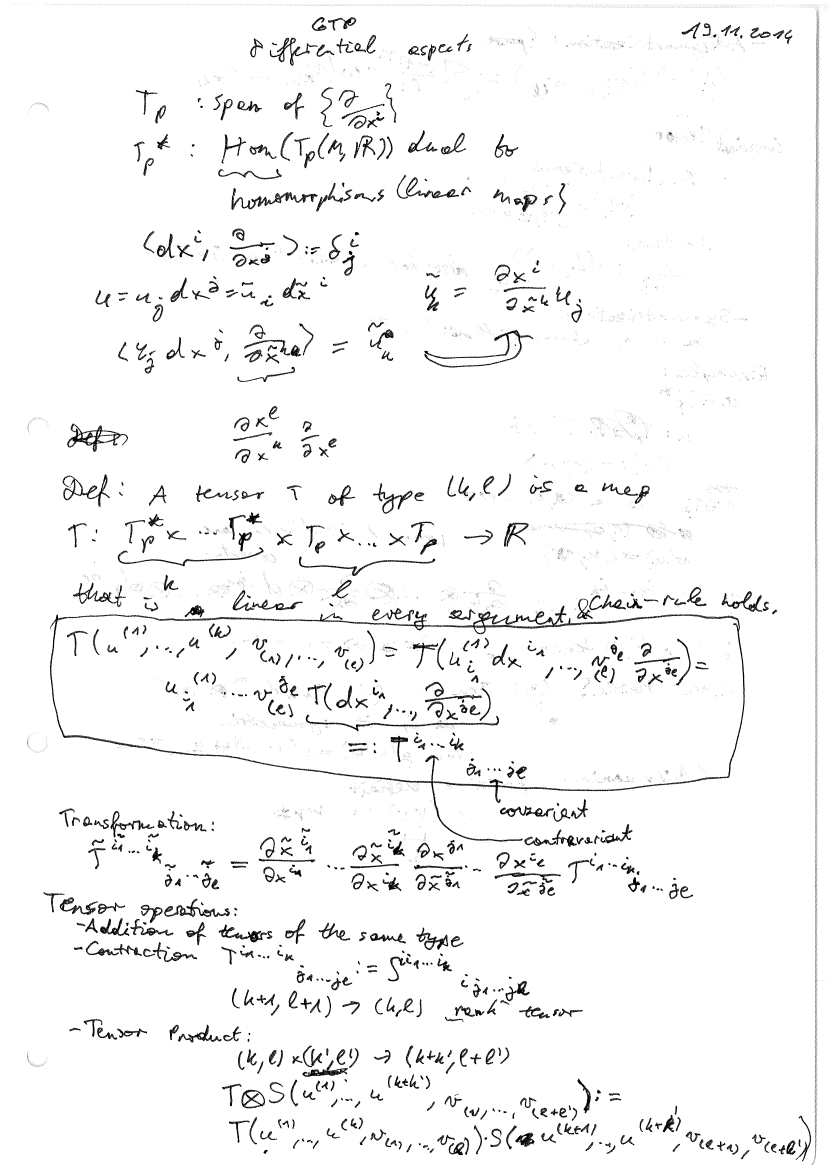 GTP 19.11.2014
Differential aspects
T_p : span of {∂/∂x^i}
T_p* : Hom(T_p(M,ℝ)) dual to
homomorphisms (linear maps}
⟨dx^i, ∂/∂x^j⟩ := δ^i_j
u = u_j dx^j = ũ_i dx̃^i ũ_k = ∂x^i/∂x̃^k u_j
dx^j, ∂/∂x̃^k ⟩ = ũ_k
∂x^l/∂x^k ∂/∂x^l
Def: A tensor T of type (k,l) is a map
T: T_p* × ... T_p* × T_p × ... × T_p → ℝ
k l
that is linear in every argument, & Chain-rule holds.
T(u^(1),...,u^(k), v_(1),...,v_(l)) = T(u_i1^(1) dx^i1,..., v_(l)^jl ∂/∂x^jl) =
u_i1^(1) ... v_(l)^jl T(dx^i1,..., ∂/∂x^jl)
=: T^i1...ik_j1...jl
covariant
contravariant
Transformation:
T̃^ĩ1...ĩk_j̃1...j̃l = ∂x̃^ĩ1/∂x^i1 ... ∂x̃^ĩk/∂x^ik ∂x^j1/∂x̃^j̃1 ... ∂x^jl/∂x̃^j̃l T^i1...ik_j1...jl
Tensor operations:
-Addition of tensors of the same type
-Contraction T^i1...ik_j1...jl := S^ii1...ik_ij1...jl
(k+1, l+1) → (k,l) rank tensor
- Tensor Product:
(k,l) × (k',l') → (k+k', l+l')
T⊗S(u^(1),..., u^(k+k'), v_(1),..., v_(l+l')) :=
T(u^(1),...,u^(k), v_(1),...,v_(l)) · S(u^(k+1),..,u^(k+k'), v_(l+1), v_(l+l'))